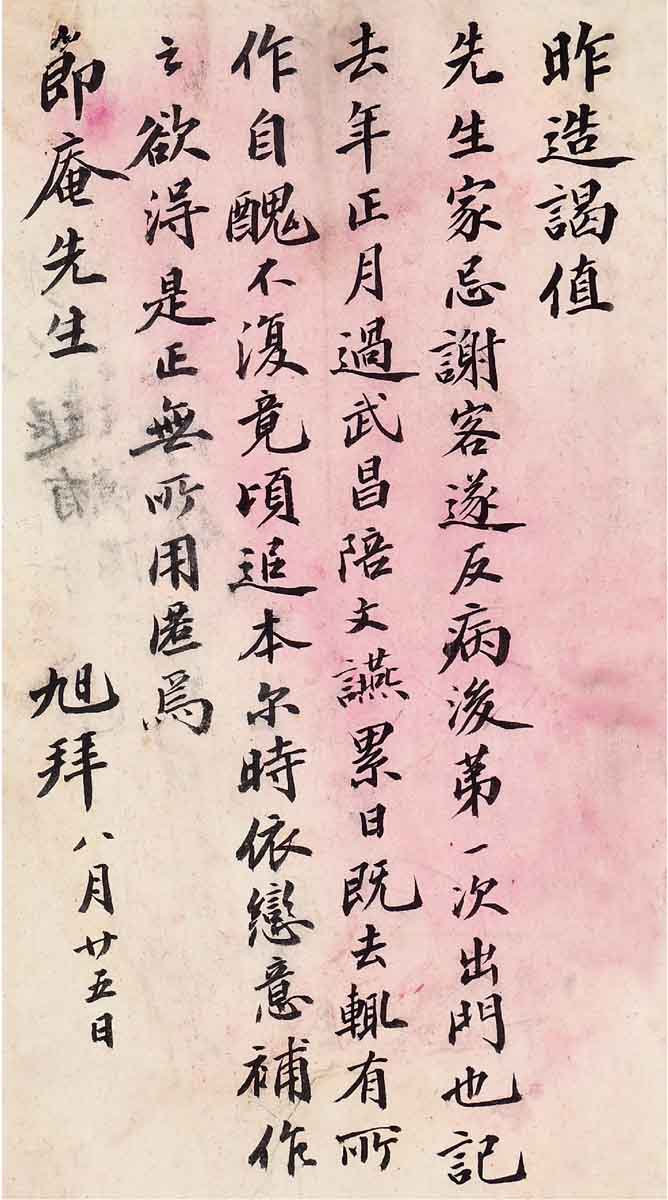 昨造謁值
先生家忌謝客遂反病後第一次出門也記
去年正月過武昌陪文讌累日既去輒有所
作自醜不復竟頃追本尔時依戀意補作
云欲得是正無所用匿焉
節庵先生
旭拜八月廿五日